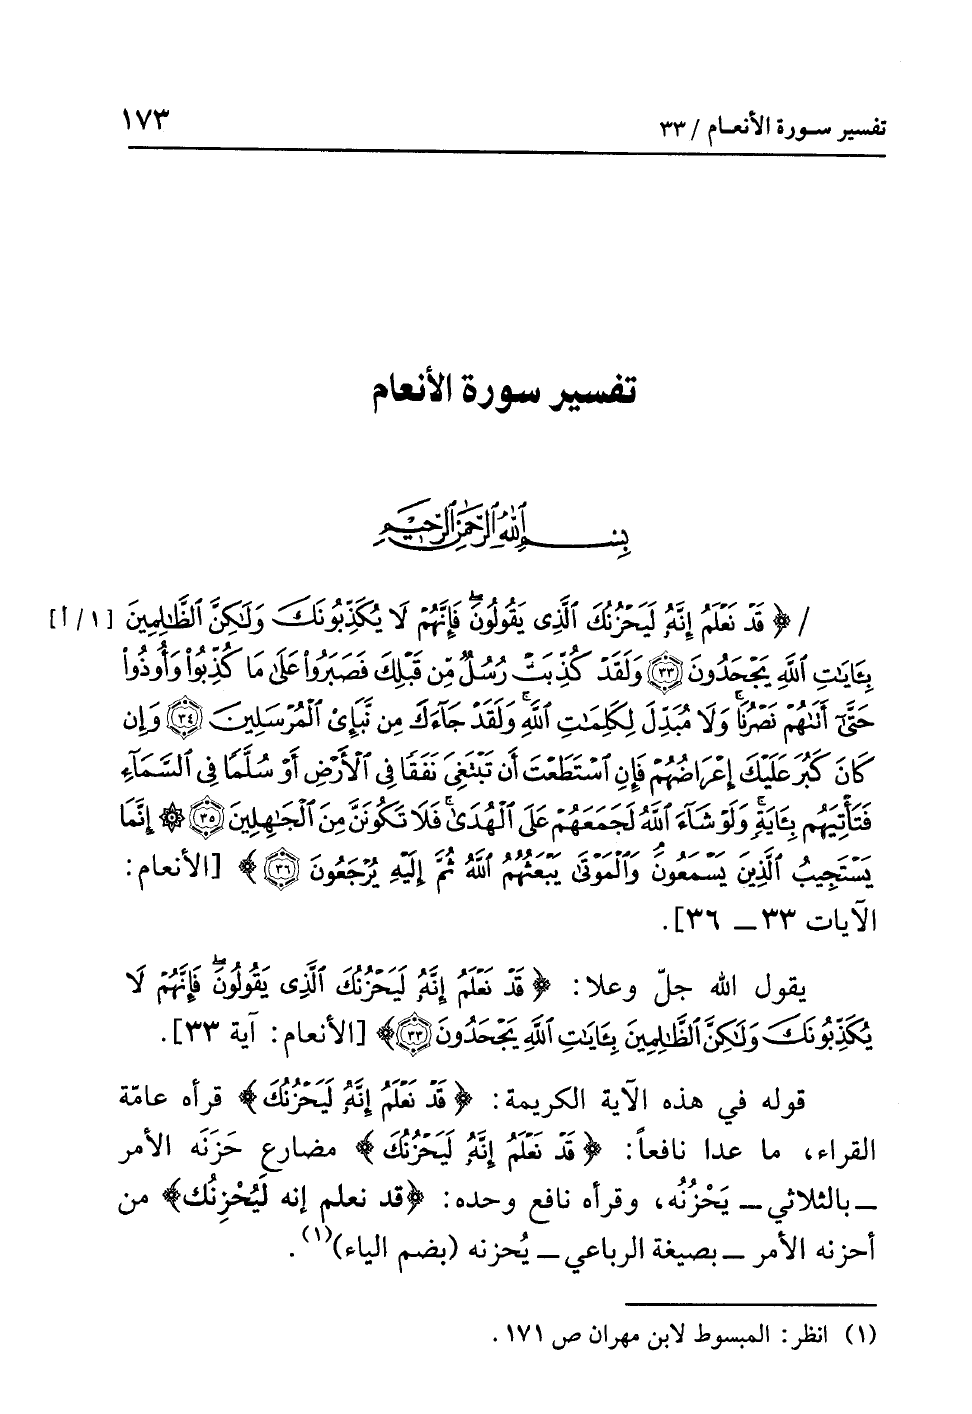 تفسير سورة الأنعام / ٣٣
١٧٣
تفسير سورة الأنعام
بِسْمِ ٱللَّهِ ٱلرَّحْمَٰنِ ٱلرَّحِيمِ
/ ﴿ قَدْ نَعْلَمُ إِنَّهُۥ لَيَحْزُنُكَ ٱلَّذِى يَقُولُونَۖ فَإِنَّهُمْ لَا يُكَذِّبُونَكَ وَلَٰكِنَّ ٱلظَّٰلِمِينَ [١/أ]
بِـَٔايَٰتِ ٱللَّهِ يَجْحَدُونَ ٣٣ وَلَقَدْ كُذِّبَتْ رُسُلٌ مِّن قَبْلِكَ فَصَبَرُوا۟ عَلَىٰ مَا كُذِّبُوا۟ وَأُوذُوا۟
حَتَّىٰٓ أَتَىٰهُمْ نَصْرُنَاۚ وَلَا مُبَدِّلَ لِكَلِمَٰتِ ٱللَّهِۚ وَلَقَدْ جَآءَكَ مِن نَّبَإِى۟ ٱلْمُرْسَلِينَ ٣٤ وَإِن
كَانَ كَبُرَ عَلَيْكَ إِعْرَاضُهُمْ فَإِنِ ٱسْتَطَعْتَ أَن تَبْتَغِىَ نَفَقًا فِى ٱلْأَرْضِ أَوْ سُلَّمًا فِى ٱلسَّمَآءِ
فَتَأْتِيَهُم بِـَٔايَةٍۚ وَلَوْ شَآءَ ٱللَّهُ لَجَمَعَهُمْ عَلَى ٱلْهُدَىٰۚ فَلَا تَكُونَنَّ مِنَ ٱلْجَٰهِلِينَ ٣٥ ۞ إِنَّمَا
يَسْتَجِيبُ ٱلَّذِينَ يَسْمَعُونَۘ وَٱلْمَوْتَىٰ يَبْعَثُهُمُ ٱللَّهُ ثُمَّ إِلَيْهِ يُرْجَعُونَ ٣٦ ﴾ [الأنعام:
الآيات ٣٣ ــ ٣٦].
يقول الله جلّ وعلا: ﴿ قَدْ نَعْلَمُ إِنَّهُۥ لَيَحْزُنُكَ ٱلَّذِى يَقُولُونَۖ فَإِنَّهُمْ لَا
يُكَذِّبُونَكَ وَلَٰكِنَّ ٱلظَّٰلِمِينَ بِـَٔايَٰتِ ٱللَّهِ يَجْحَدُونَ ٣٣ ﴾ [الأنعام: آية ٣٣].
قوله في هذه الآية الكريمة: ﴿ قَدْ نَعْلَمُ إِنَّهُۥ لَيَحْزُنُكَ ﴾ قرأه عامّة
القراء، ما عدا نافعاً: ﴿ قَدْ نَعْلَمُ إِنَّهُۥ لَيَحْزُنُكَ ﴾ مضارع حَزَنَه الأمر
ــ بالثلاثي ــ يَحْزُنُه، وقرأه نافع وحده: ﴿قد نعلم إنه لَيُحْزِنُك﴾ من
أحزنه الأمر ــ بصيغة الرباعي ــ يُحزنه (بضم الياء)(١).
(١) انظر: المبسوط لابن مهران ص ١٧١.